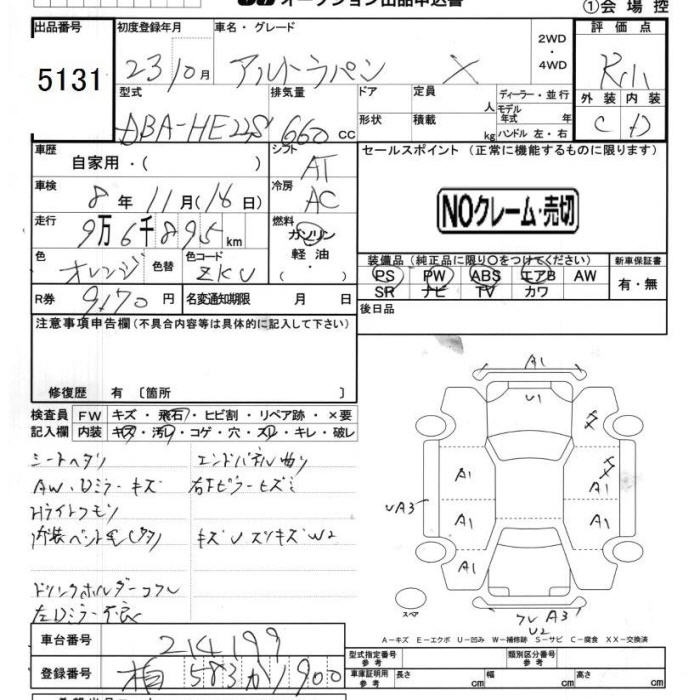 オークション出品申込書 ①会場控
出品番号 初度登録年月 車名・グレード 評価点
5131 23 10月 アルトラパン X 2WD・4WD
型式 排気量 ドア 定員 人 ディーラー・並行 外装 内装
DBA-HE22S 660 CC 形状 積載 kg モデル年式 年 ハンドル 左・右 C D
車歴 自家用・( ) シフト AT セールスポイント (正常に機能するものに限ります)
車検 8年11月(16日) 冷房 AC
NOクレーム・売切
走行 9万6千895km 燃料 ガソリン・軽油・( )
色 オレンジ 色替 色コード ZKU
装備品 (純正品に限り〇をつけてください) 新車保証書
PS PW ABS エアB AW 有・無
SR ナビ TV カワ
R券 9170円 名変通知期限 月 日
後日品
注意事項申告欄(不具合内容等は具体的に記入して下さい)
修復歴 有 [箇所 ]
検査員 FW キズ・飛石・ヒビ割・リペア跡・×要
記入欄 内装 キズ・汚レ・コゲ・穴・スレ・キレ・破レ
シートヘタリ エンドパネル曲り
AW、Dミラーキズ 右Fピラーヒズミ
Hライトクモリ
キズUスリキズW2
ドリンクホルダーコワレ
左Dミラー不良
A1
U1
A1 A1
UA3 A1 A1
A1
スペア
ワレ A3
U2
A-キズ E-エクボ U-凹み W-補修跡 S-サビ C-腐食 XX-交換済
車台番号 214199
型式指定番号 参考 類別区分番号 参考
登録番号 583 か 900
車庫証明用 参考 長さ cm 幅 cm 高さ cm